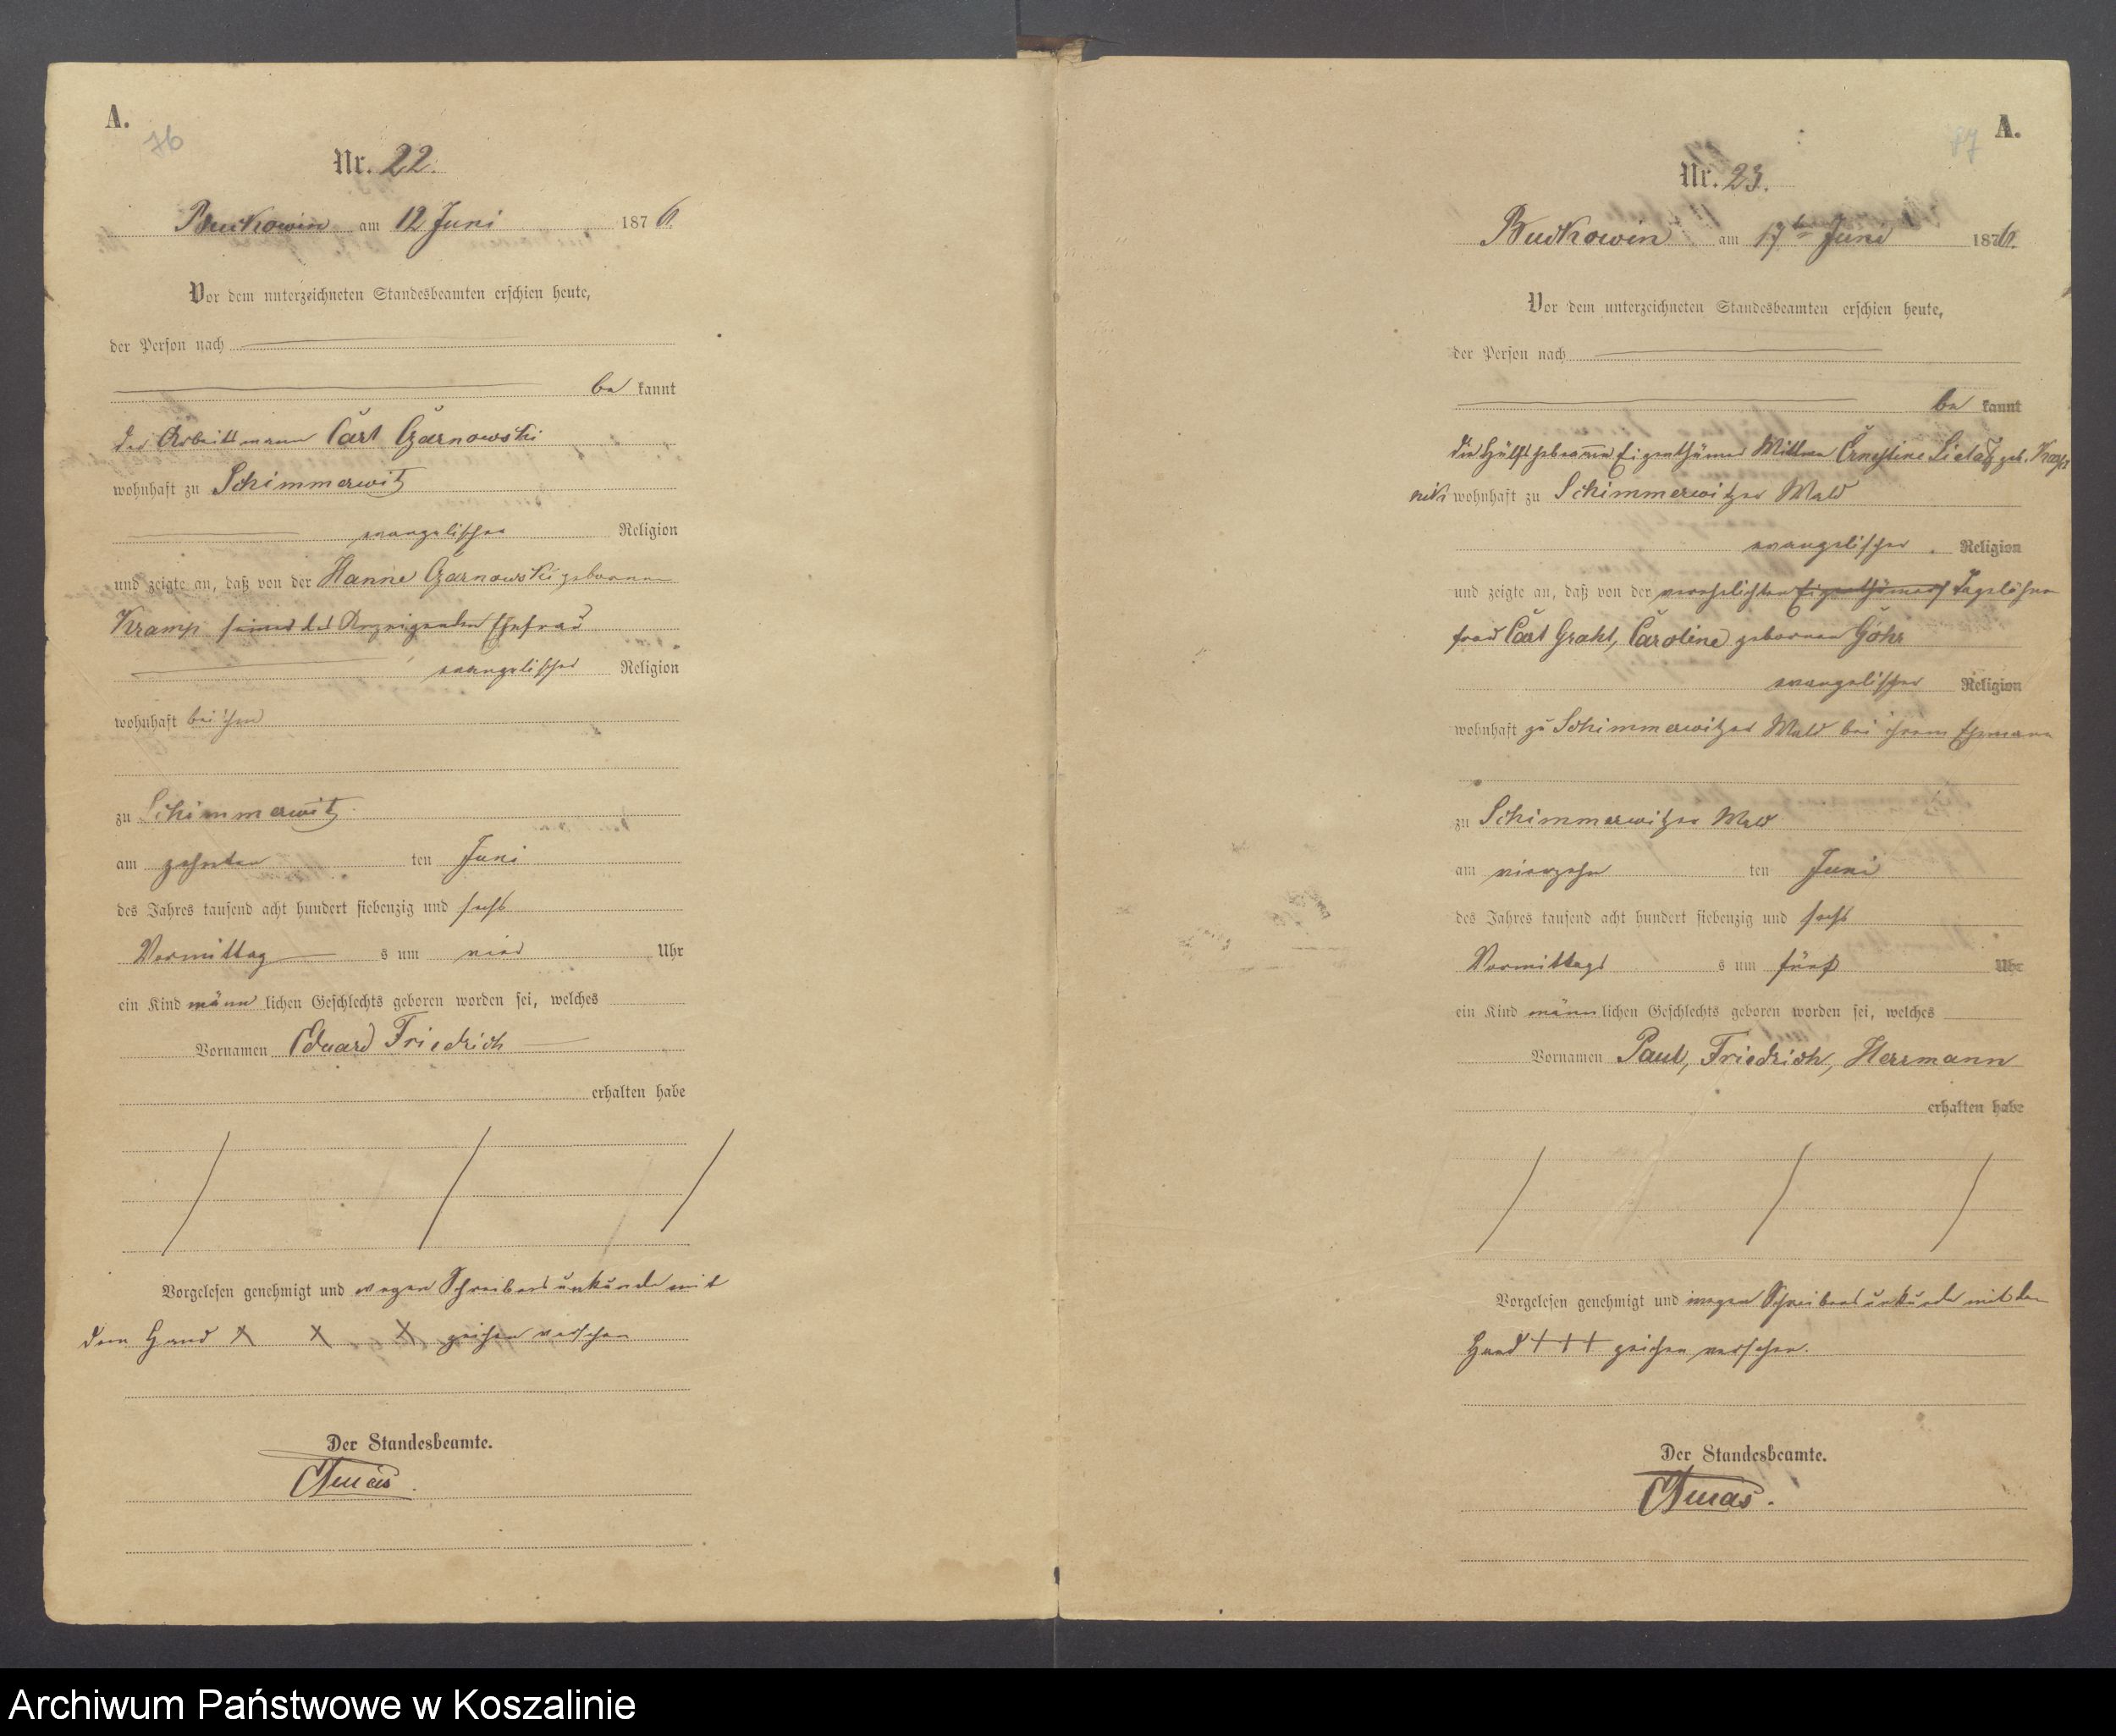 A.
76
Nr. 22.
Buckowin am 12 Juni 1876.
Vor dem unterzeichneten Standesbeamten erschien heute,
der Person nach
be kannt
der Arbeitsmann Carl Czarnowski
wohnhaft zu Schimmerwitz
evangelischer Religion
und zeigte an, daß von der Hanne Czarnowski geborenen
Kramp seiner des Anzeigenden Ehefrau
evangelischer Religion
wohnhaft bei ihm
zu Schimmerwitz
am zehnten ten Juni
des Jahres tausend acht hundert siebenzig und sechs
Vormittag s um vier Uhr
ein Kind männ lichen Geschlechts geboren worden sei, welches
Vornamen Eduard Friedrich
erhalten habe
Vorgelesen genehmigt und wegen Schreibensunkunde mit
dem Hand X X X zeichen versehen
Der Standesbeamte.
A.
87
Nr. 23.
Buckowin am 17ten Juni 1876.
Vor dem unterzeichneten Standesbeamten erschien heute,
der Person nach
be kannt
die Eigenthümer Wittwe Ernestine geb.
wohnhaft zu Schimmerwitzer Wald
evangelischer Religion
und zeigte an, daß von der verehelichten Eigenthümers Tagelöhner
frau Carl Grahl, Caroline geborenen Göhr
evangelischer Religion
wohnhaft zu Schimmerwitzer Wald bei ihrem Ehemann
zu Schimmerwitzer Wald
am vierzehn ten Juni
des Jahres tausend acht hundert siebenzig und sechs
Vormittags s um fünf Uhr
ein Kind männ lichen Geschlechts geboren worden sei, welches
Vornamen Paul, Friedrich, Herrmann
erhalten habe
Vorgelesen genehmigt und wegen Schreibensunkunde mit den
Hand +++ zeichen versehen.
Der Standesbeamte.
Archiwum Państwowe w Koszalinie